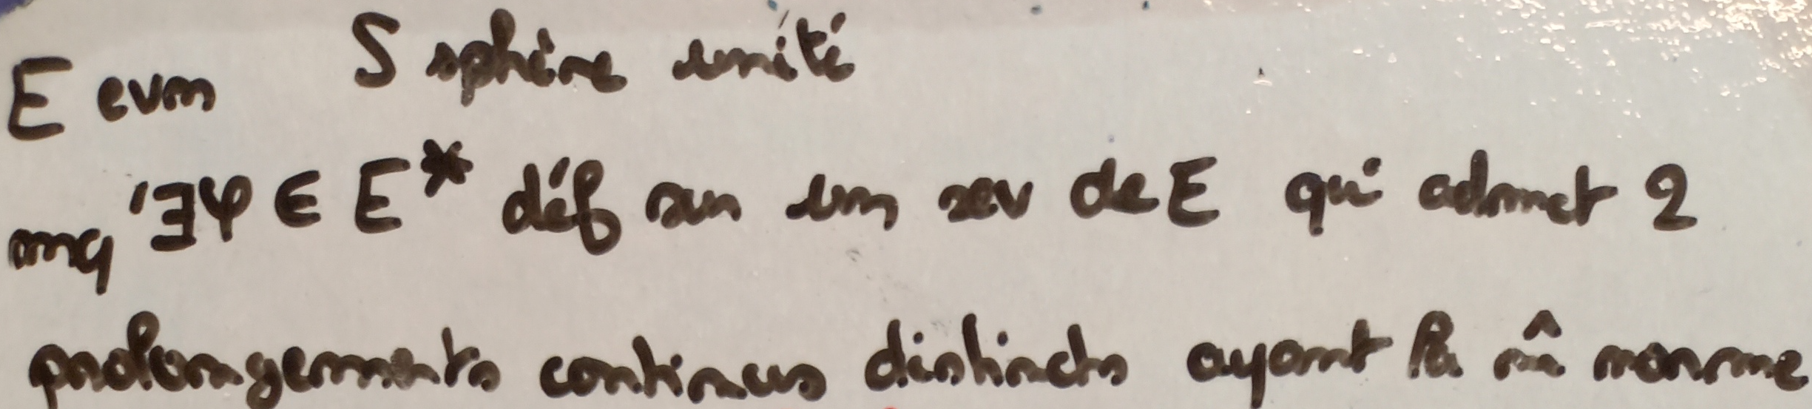 E evn S sphère unité
mq '∃φ ∈ E* déf sur un sev de E qui admet 2
prolongements continus distincts ayant la m̂ norme